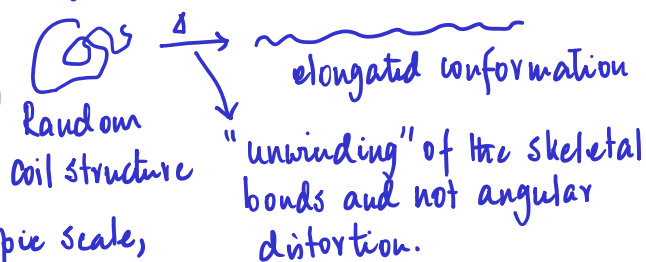 Δ
elongated conformation
Random
coil structure
"unwinding" of the skeletal
bonds and not angular
distortion.
pic scale,